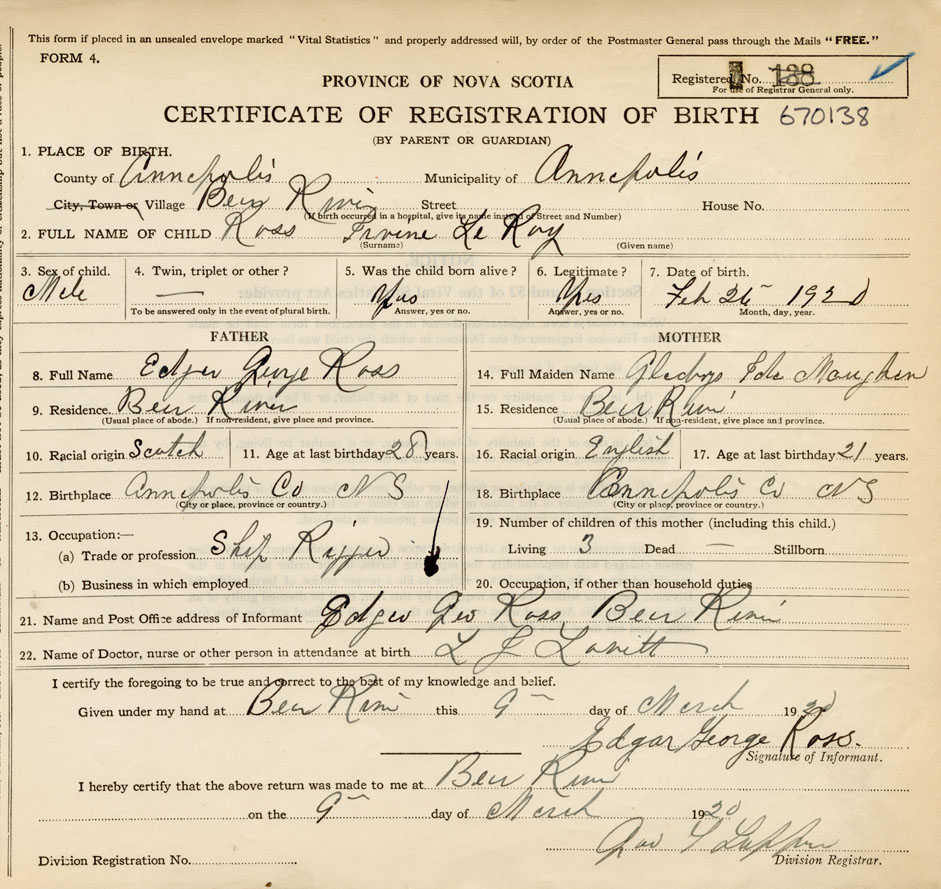 This form if placed in an unsealed envelope marked "Vital Statistics" and properly addressed will, by order of the Postmaster General pass through the Mails "FREE."
FORM 4.
Registered No. 138
For use of Registrar General only.
PROVINCE OF NOVA SCOTIA
CERTIFICATE OF REGISTRATION OF BIRTH 670138
(BY PARENT OR GUARDIAN)
1. PLACE OF BIRTH.
County of Annapolis Municipality of Annapolis
City, Town or Village Bear River Street House No.
(If birth occurred in a hospital, give its name instead of Street and Number)
2. FULL NAME OF CHILD Ross Irvine Le Roy
(Surname) (Given name)
3. Sex of child. 4. Twin, triplet or other? 5. Was the child born alive? 6. Legitimate? 7. Date of birth.
Male — Yes Yes Feb 26 1920
To be answered only in the event of plural birth. Answer, yes or no. Answer, yes or no. Month, day, year.
FATHER MOTHER
8. Full Name Edgar George Ross 14. Full Maiden Name Gladys Ida Maughan
9. Residence. Bear River 15. Residence Bear River
(Usual place of abode.) If non-resident, give place and province. (Usual place of abode.) If non-resident, give place and province.
10. Racial origin Scotch 11. Age at last birthday 28 years. 16. Racial origin English 17. Age at last birthday 21 years.
12. Birthplace Annapolis Co N S 18. Birthplace Annapolis Co N S
(City or place, province or country.) (City or place, province or country.)
13. Occupation:— 19. Number of children of this mother (including this child.)
(a) Trade or profession Ship Rigger Living 3 Dead — Stillborn
(b) Business in which employed 20. Occupation, if other than household duties
21. Name and Post Office address of Informant Edgar Geo Ross, Bear River
22. Name of Doctor, nurse or other person in attendance at birth L J Lovitt
I certify the foregoing to be true and correct to the best of my knowledge and belief.
Given under my hand at Bear River this 9 day of March 1920
Edgar George Ross.
Signature of Informant.
I hereby certify that the above return was made to me at Bear River
on the 9 day of March 1920
Division Registration No. Division Registrar.